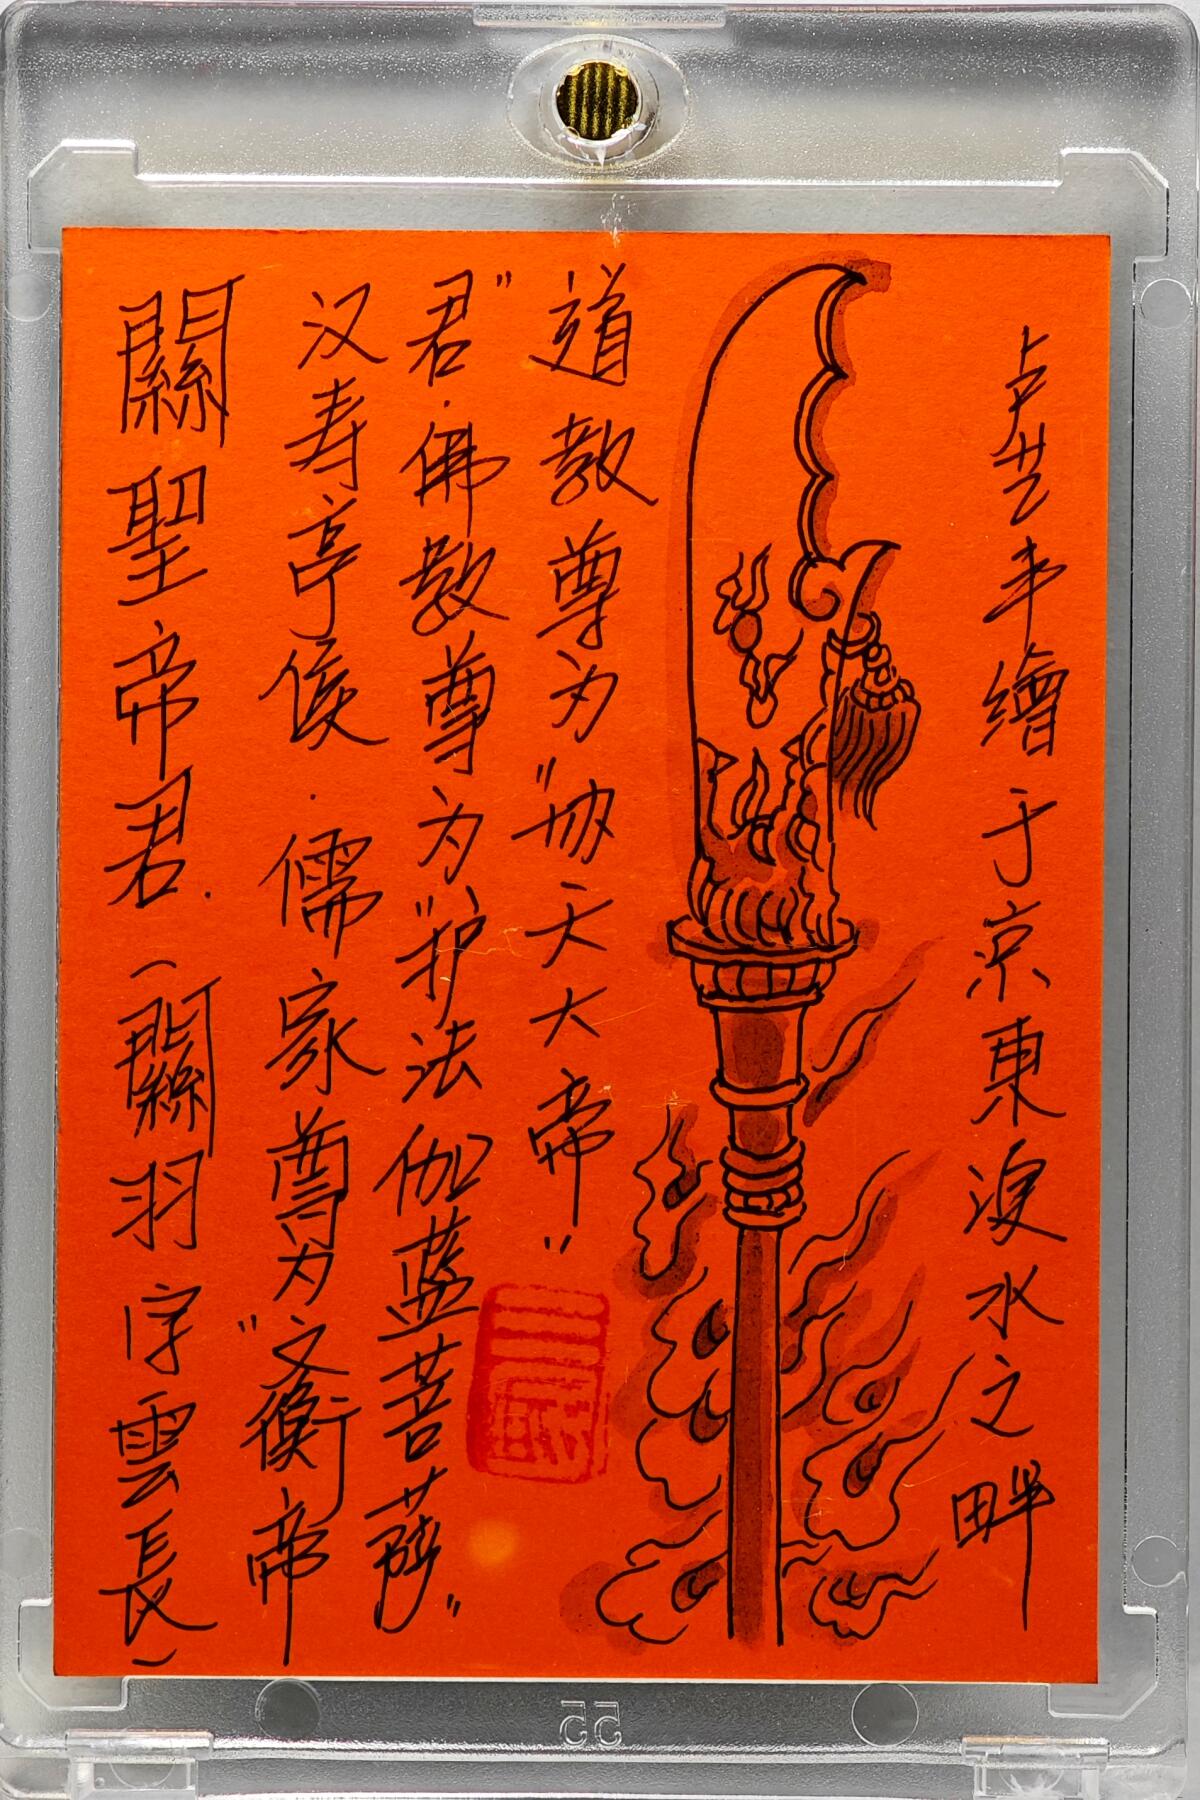 關聖帝君.（關羽字雲長）
汉寿亭侯.儒家尊为"文衡帝
君".佛教尊为"护法伽蓝菩萨"
道教尊为"协天大帝"
卢艺丰繪于京東水之畔